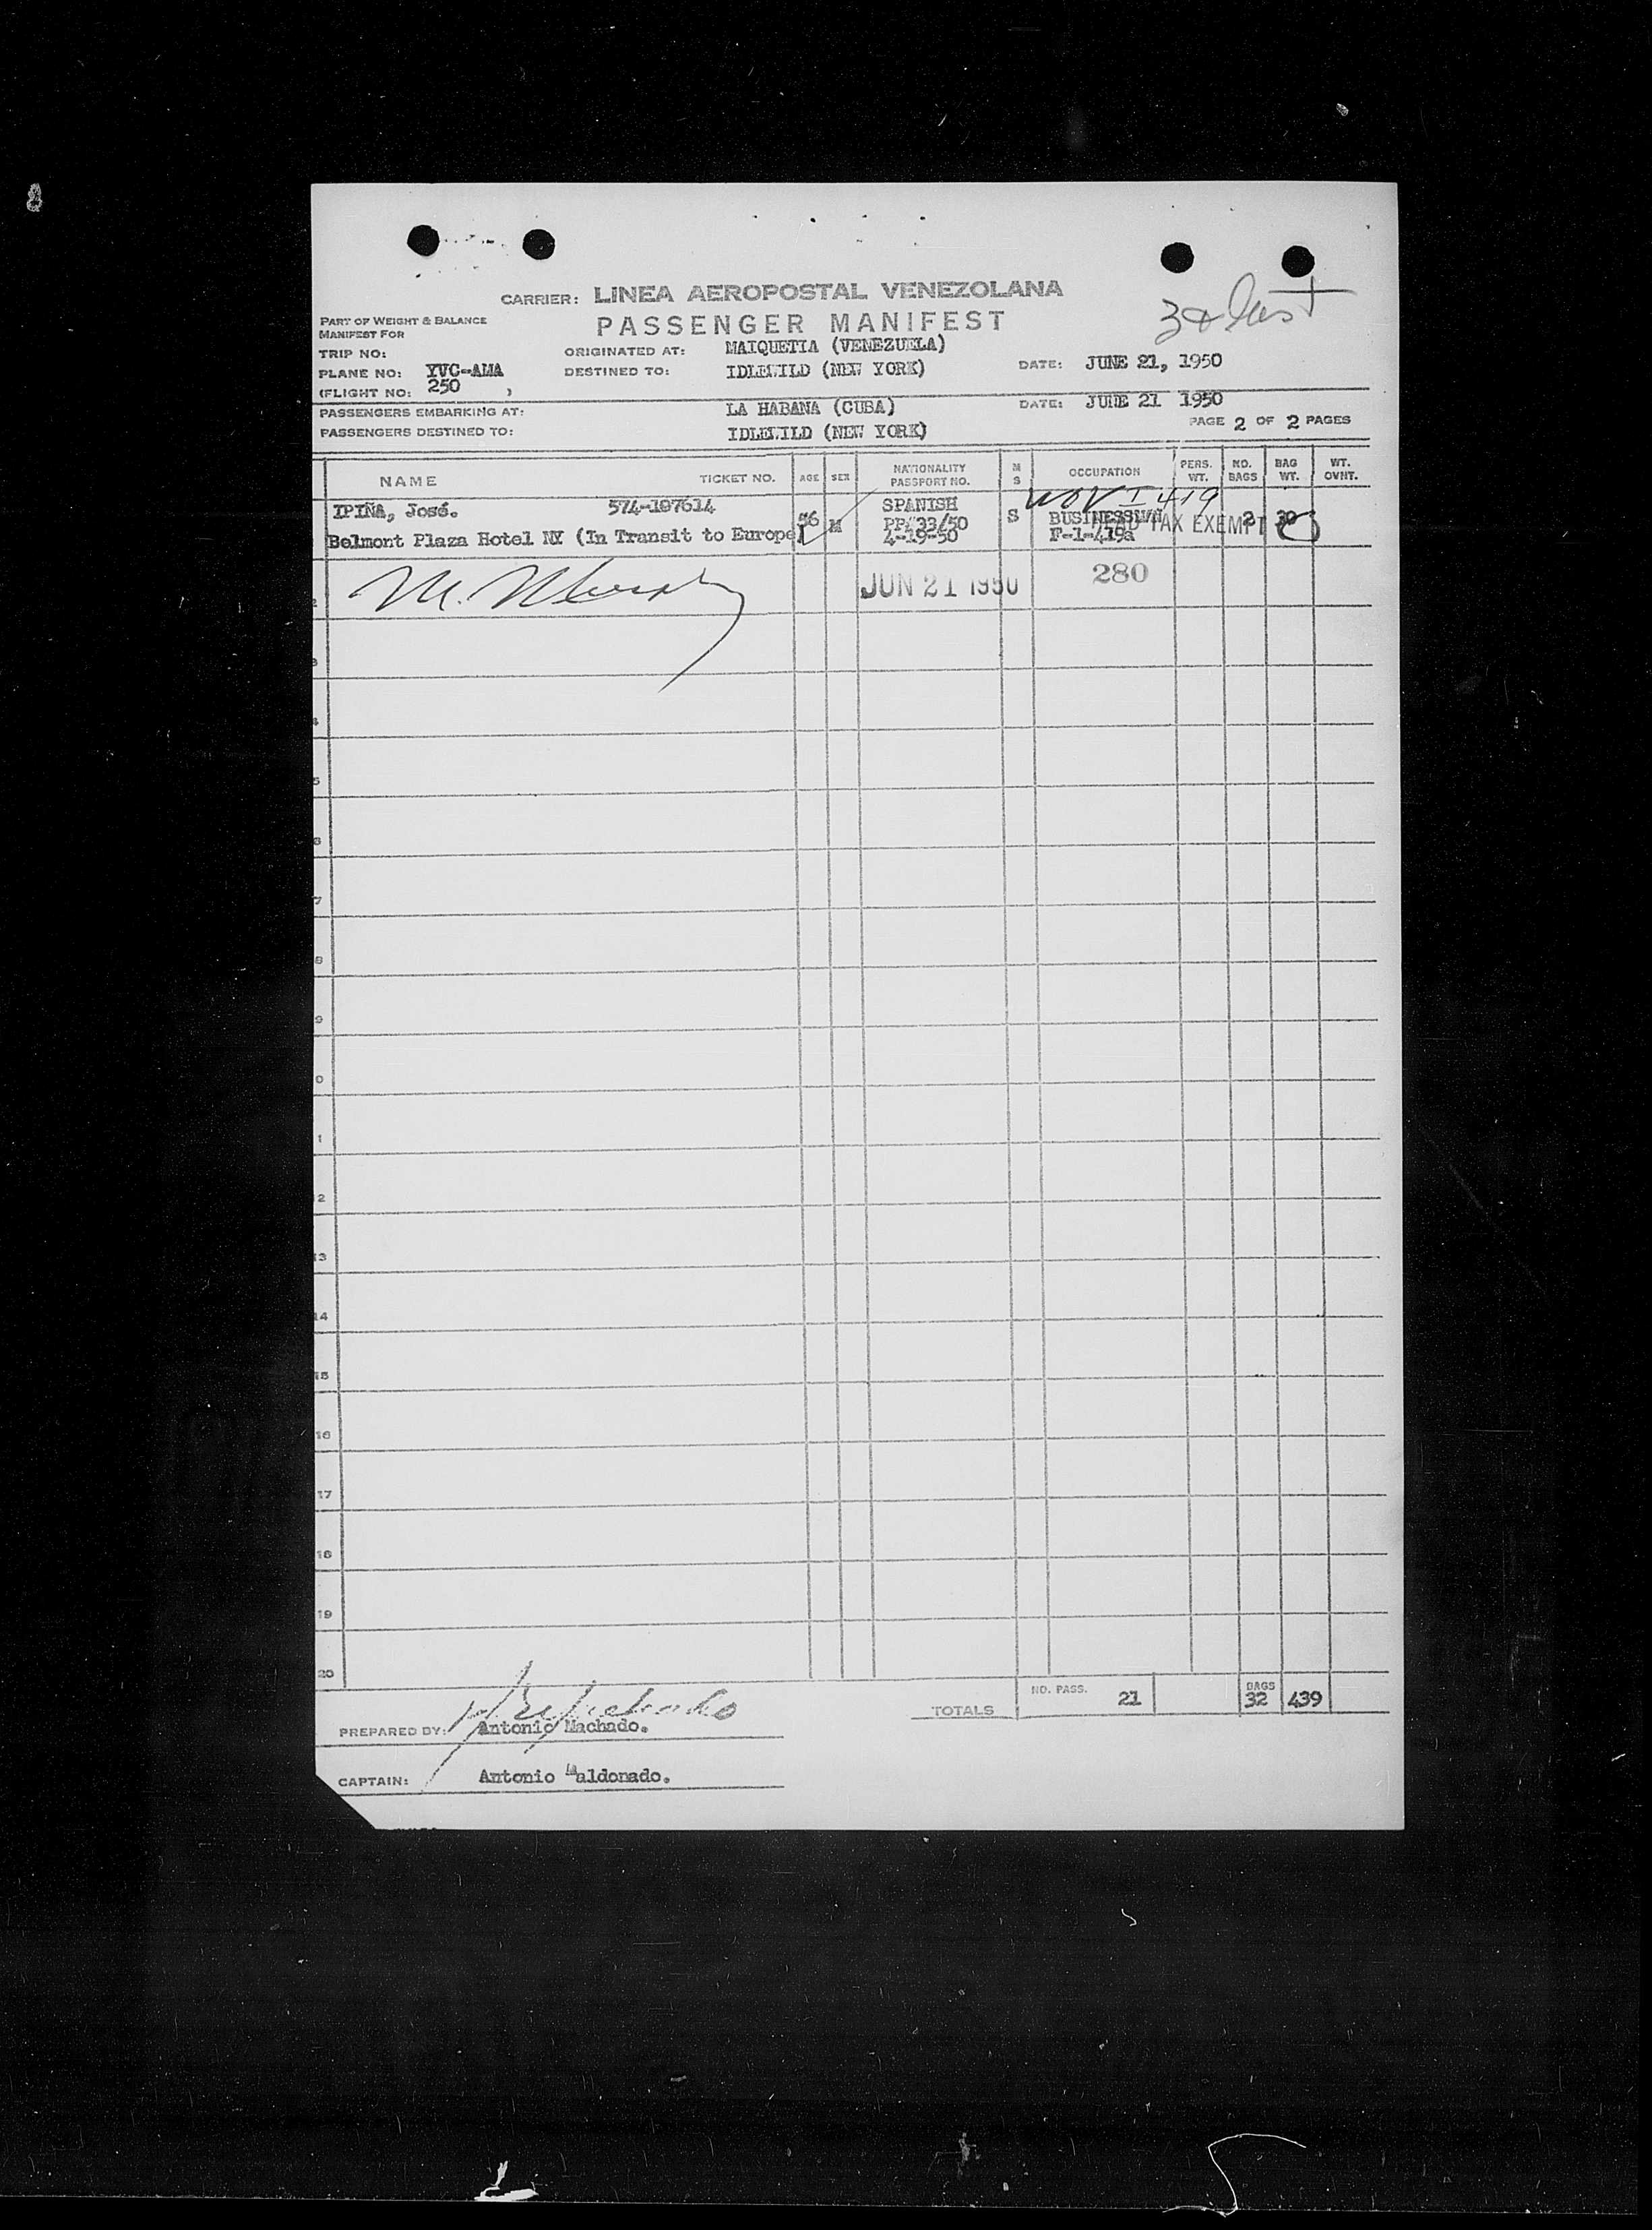 3 & last
CARRIER: LINEA AEROPOSTAL VENEZOLANA
PASSENGER MANIFEST
PART OF WEIGHT & BALANCE
MANIFEST FOR
TRIP NO:
ORIGINATED AT: MAIQUETIA (VENEZUELA)
PLANE NO: YVC-AMA
DESTINED TO: IDLEWILD (NEW YORK)
DATE: JUNE 21, 1950
(FLIGHT NO: 250 )
PASSENGERS EMBARKING AT: LA HABANA (CUBA)
DATE: JUNE 21 1950
PASSENGERS DESTINED TO: IDLEWILD (NEW YORK)
PAGE 2 OF 2 PAGES
NAME TICKET NO. AGE SEX NATIONALITY PASSPORT NO. M S OCCUPATION PERS. WT. NO. BAGS BAG WT. WT. OVHT.
IPIÑA, José. 574-187614 56 M SPANISH S BUSINESSMAN 2 30
Belmont Plaza Hotel NY (In Transit to Europe) PP# 33/50
4-19-50 F-1-419a
HEAD TAX EXEMPT
JUN 21 1950 280
2
3
4
5
6
7
8
9
0
1
2
13
14
15
16
17
18
19
20
TOTALS NO. PASS. 21 BAGS 32 439
PREPARED BY: Antonio Machado.
CAPTAIN: Antonio Maldonado.